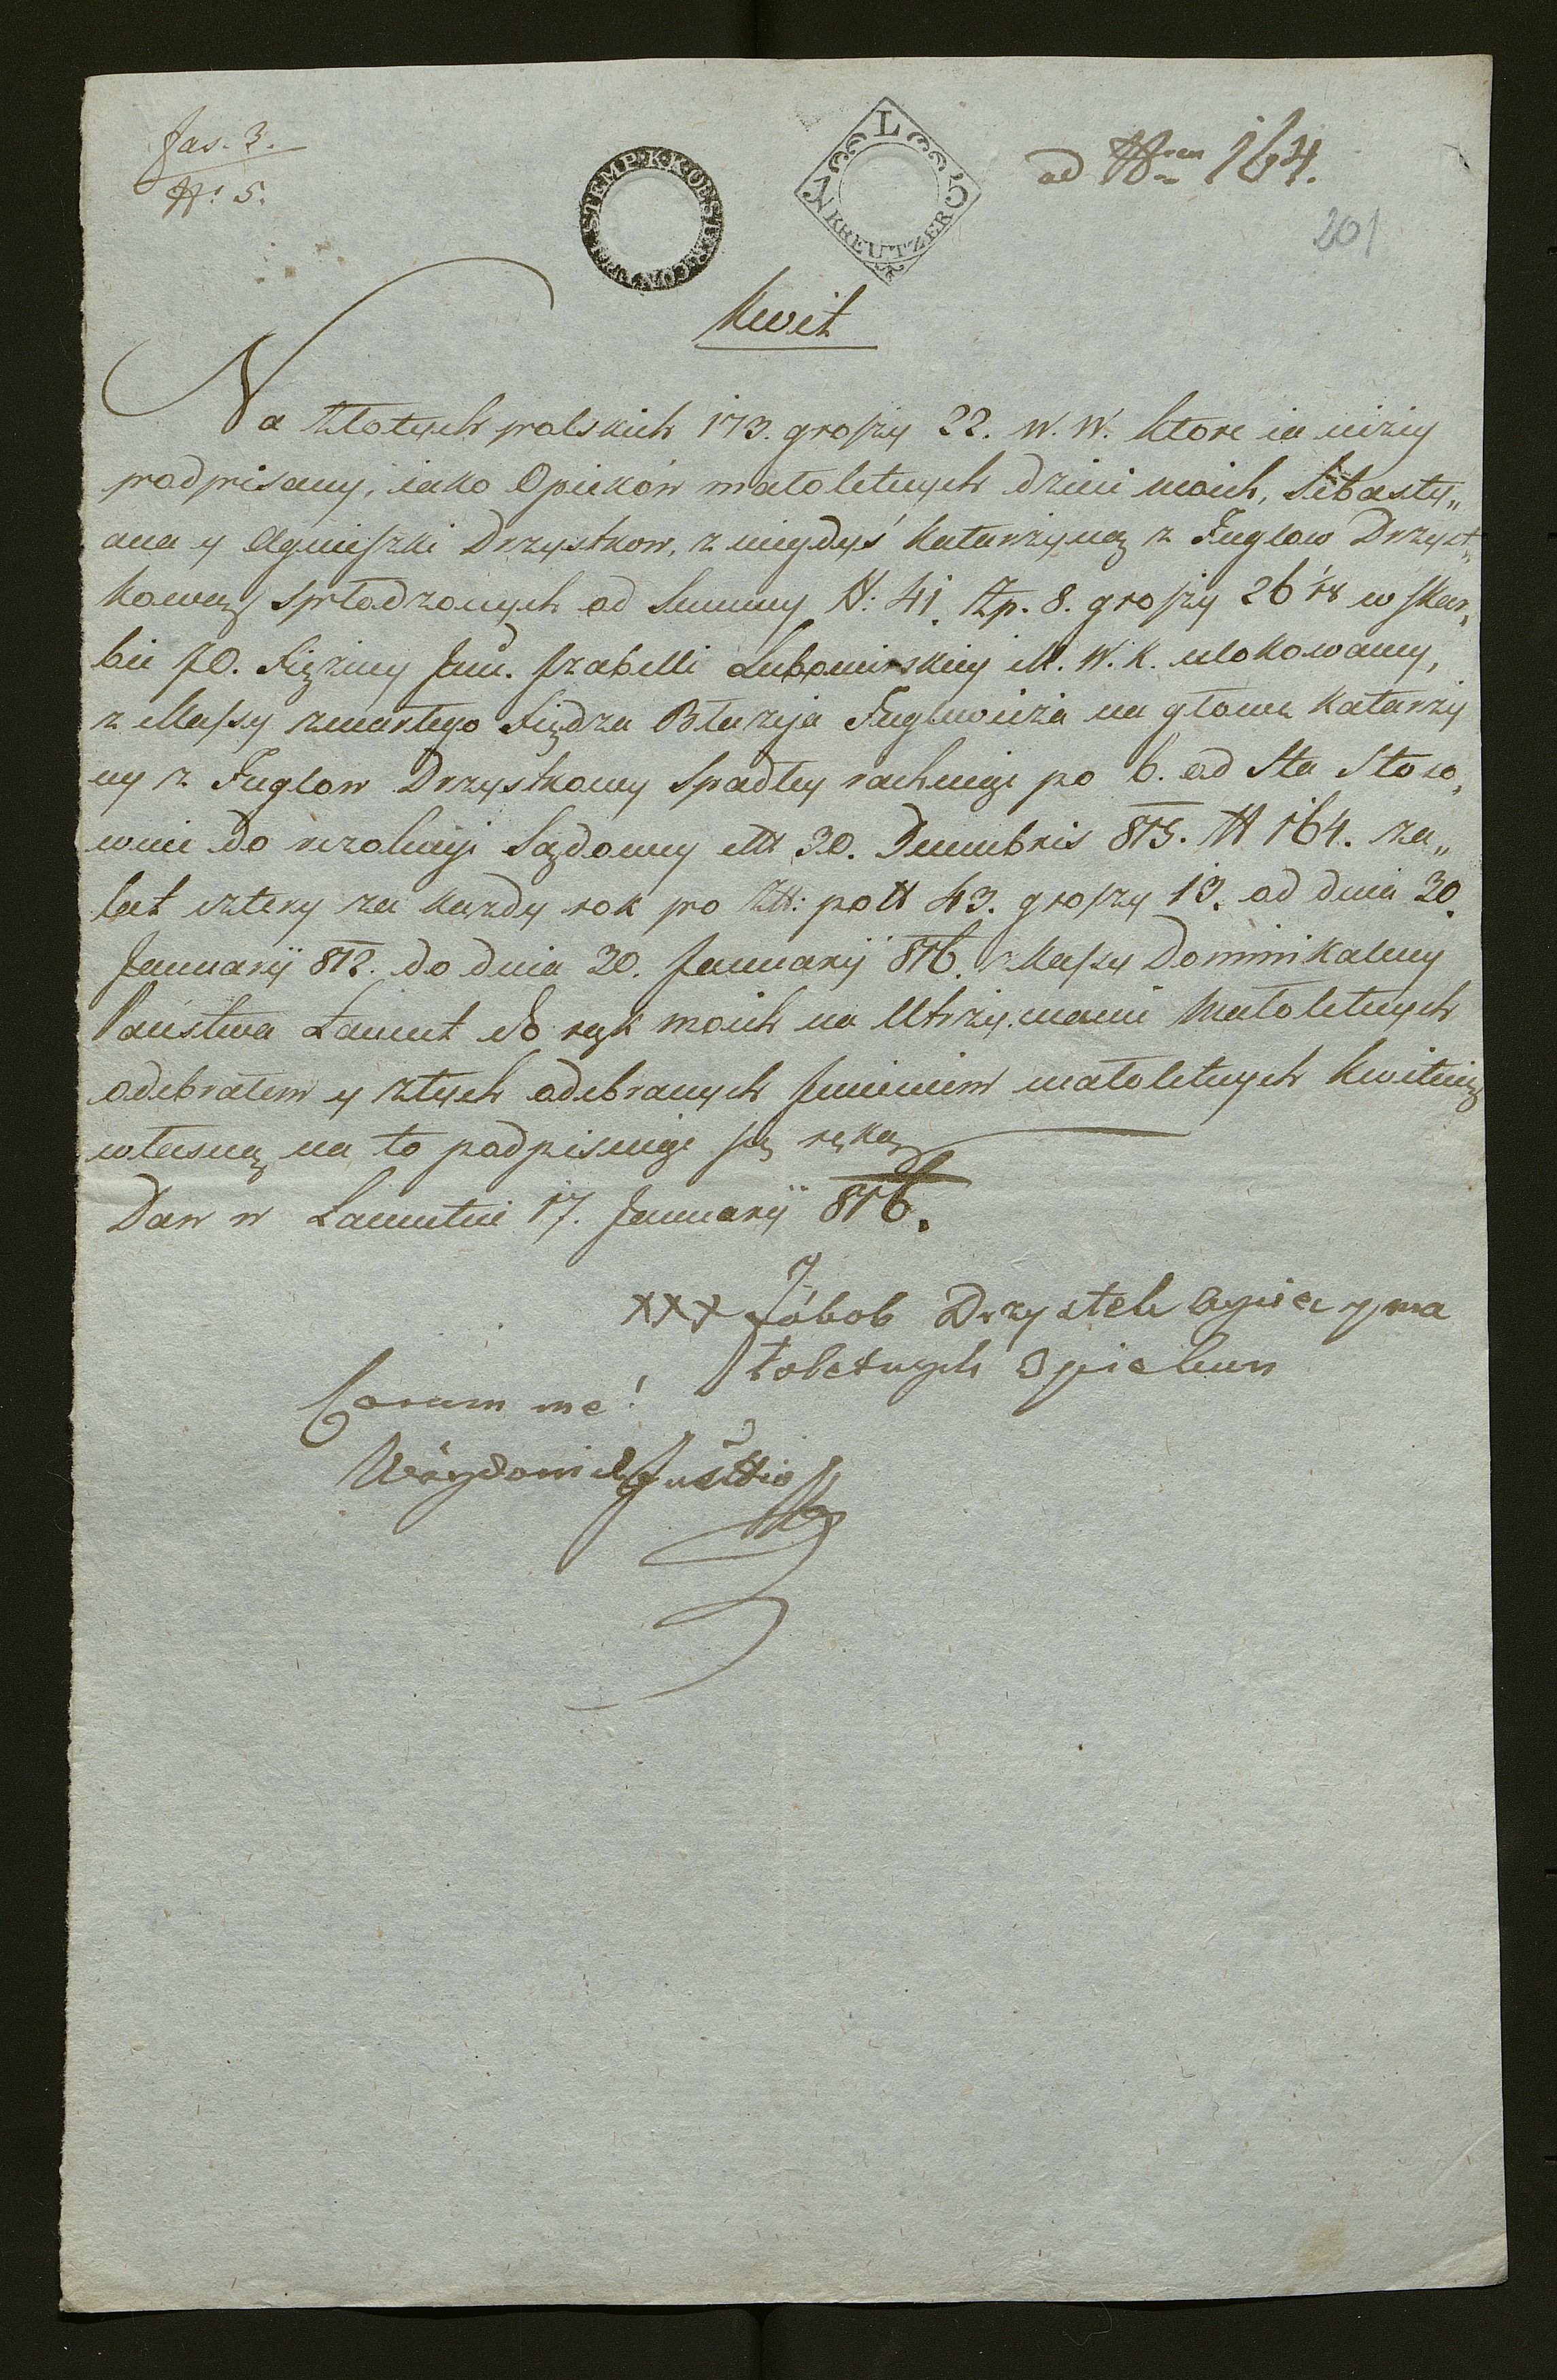 fas. 3.
N: 5.
STEMP. K. K. OESTERR.
L
15
KREUTZER
ad Nrum 164.
201
Kwit
Na Złotych polskich 173. groszy 22. W. W. ktore ia niziy
podpisany, iako Opiekón małoletnych dzieci moich, Sebasty„
ana y Agnieszki Drzystkow, z niegdyś Katarzyną z Fuglow Drzyst„
kową spłodzonych od Summy N: 41. Zp. 8. groszy 26 w skar„
bie JO. Xiężny Jzabelli Lubomirskiy M. W. K. ulokowany,
z Massy zmarłego Xiędza Błazeja Fuglewicza na głowę Katarzy
ny z Fuglow Drzystkowy spadły rachuiąc po 6. od Sta Stoso„
wnie do rezolucyi Sądowey 30. Decembris 815. N 164. za„
lat cztery za kazdy rok po 43. groszy 13. od dnia 20.
Januarij 812. do dnia 20. Januarij 816. z Massy Dominikalny
Państwa Łancut do rąk moich na Utrzymanie małoletnych
odebrałem y z tych odebranych Jmieniem małoletnych kwituię
własną na to podpisuiąc się ręką
Dan w Lancutcie 17. Januarij 816.
XXX Jákob Drzystek Oyiec y ma
łoletnych Opiekun
Coram me!
Justtio